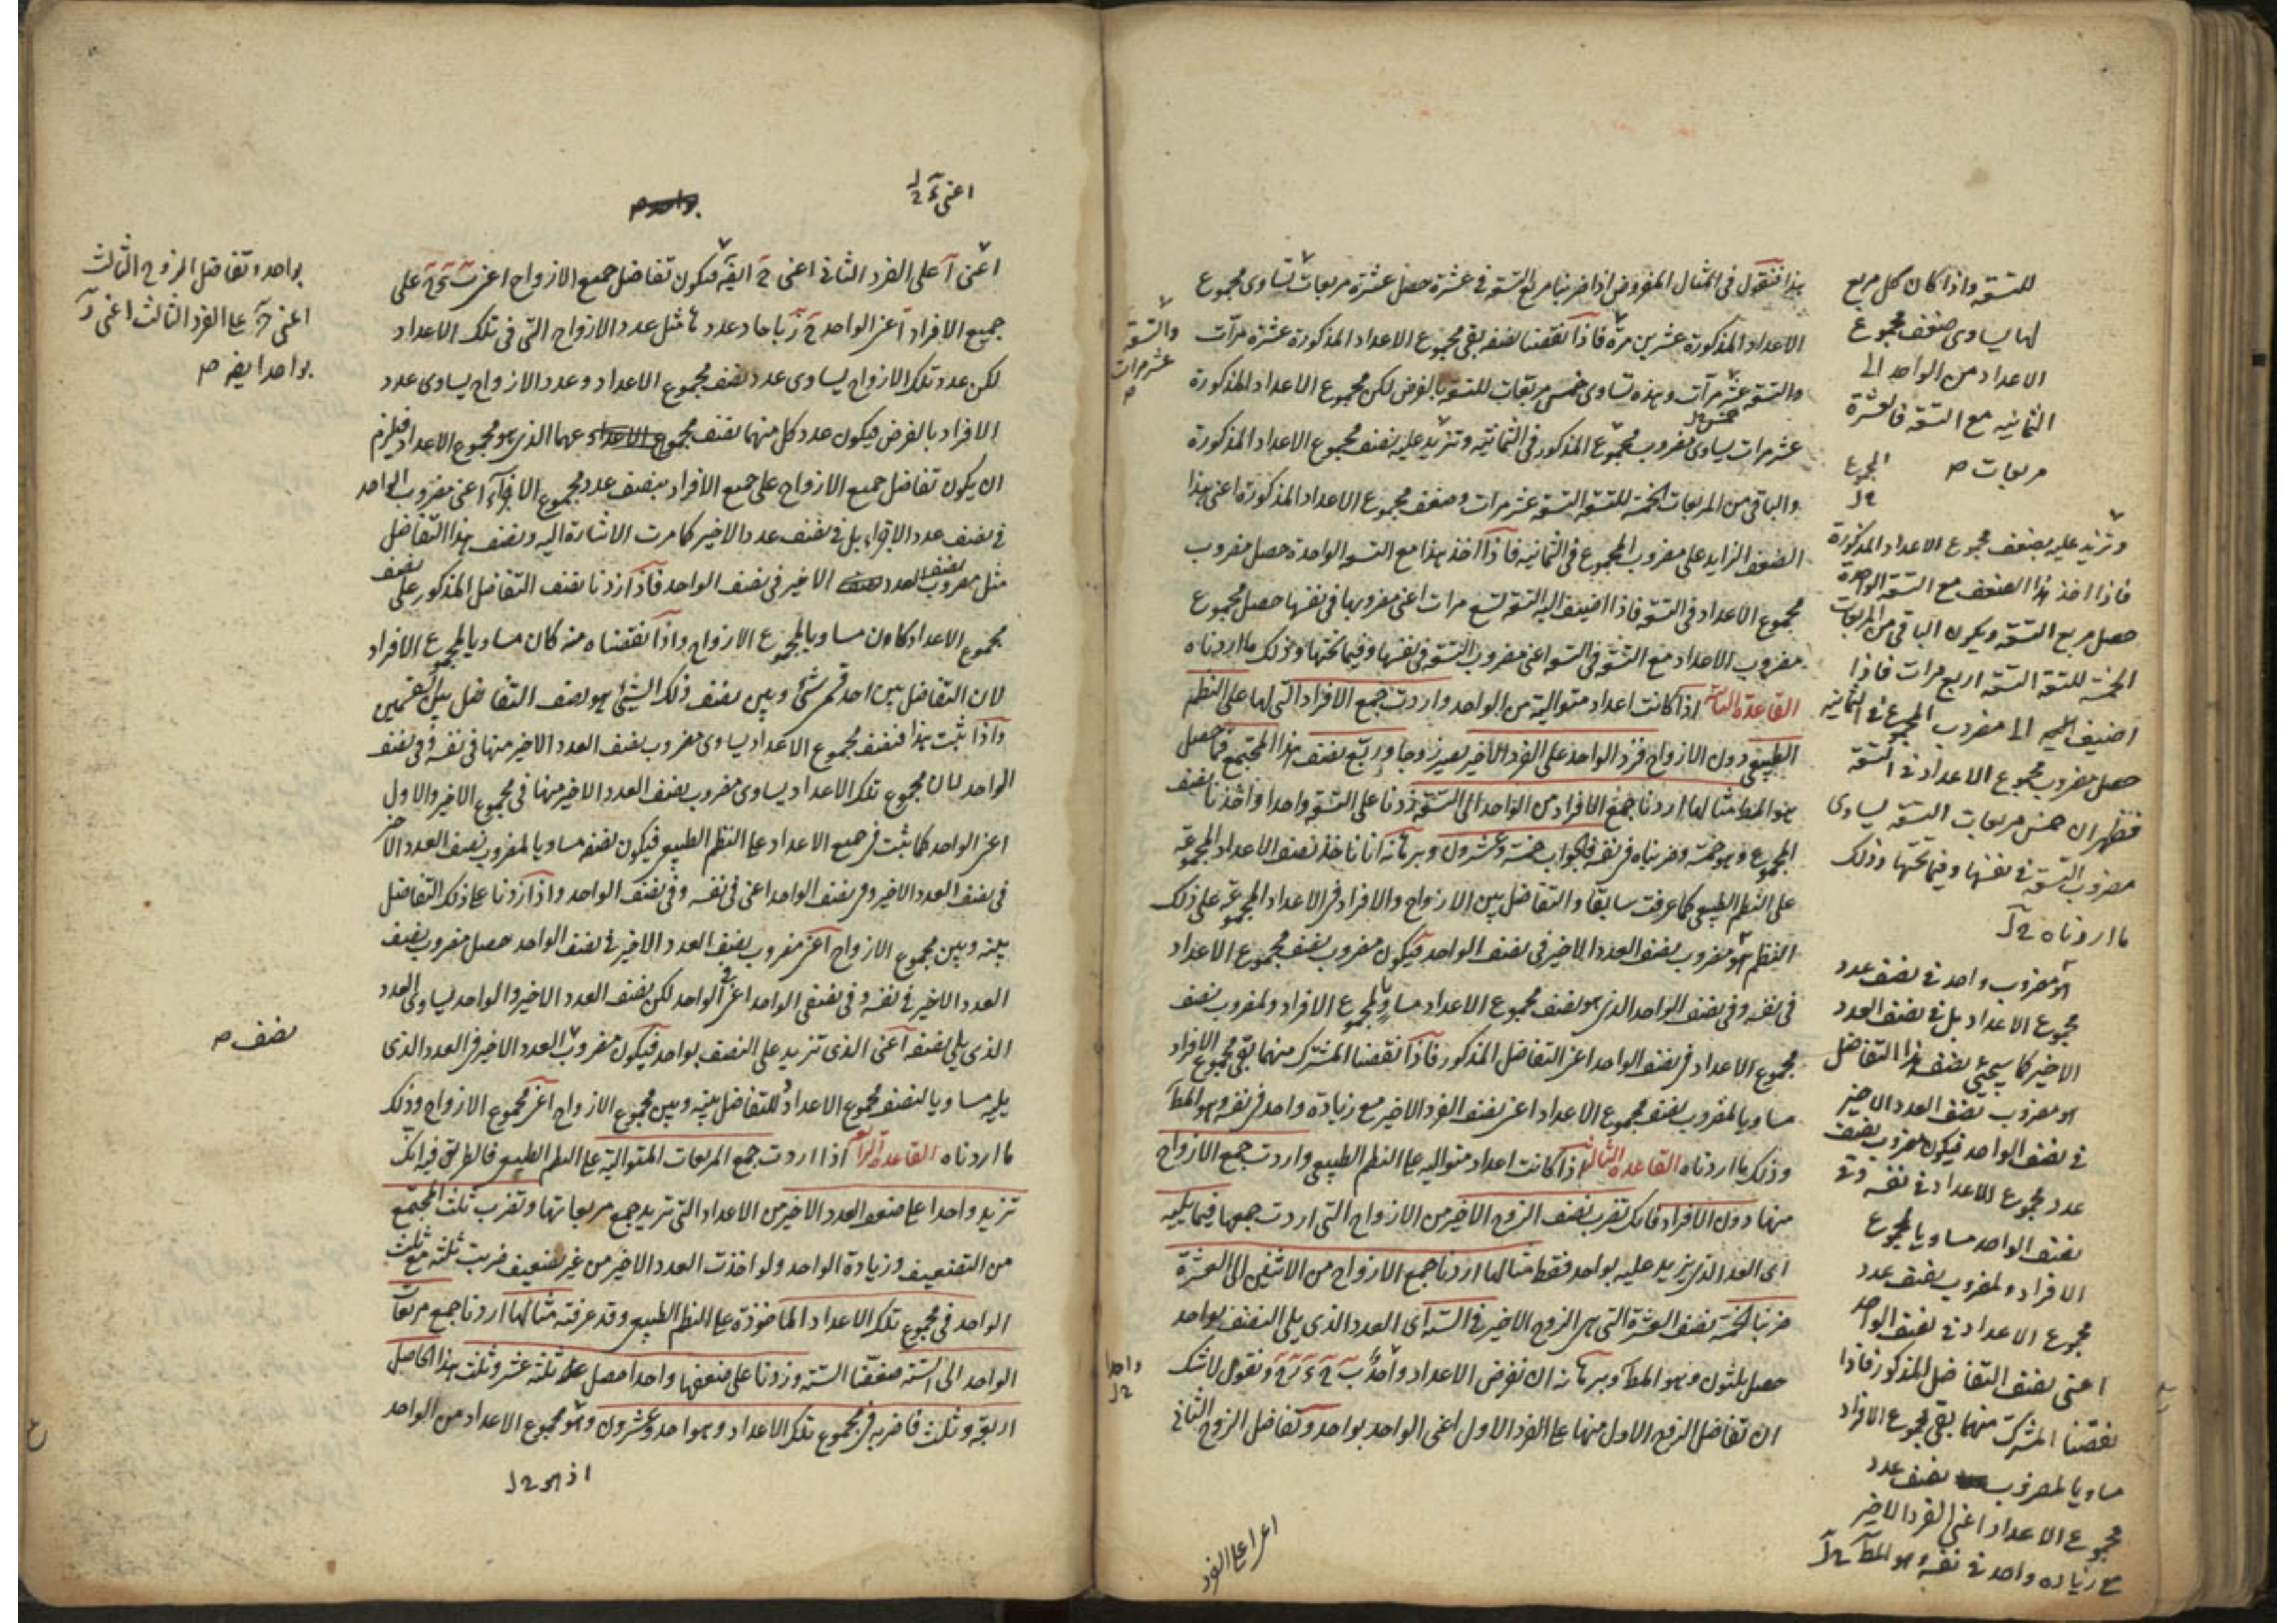 هذا فنقول فى المثال المفروض اذا ضربنا مربع التسعة فى عشرة حصل عشرة مربعات تساوى مجموع
الاعداد المذكورة عشرين مرة فاذا نقصنا نصفه بقى مجموع الاعداد المذكورة عشرة مرات
والتسعة عشر مرآت وهذه تساوى خمس مربعات للتسعة بالفرض لكن مجموع الاعداد المذكورة
عشر مرات يساوى مضروب مجموع المذكور فى الثمانية وتزيد عليه بضعف مجموع الاعداد المذكورة
والباقى من المربعات الخمسة للتسعة التسعة عشر مرات وضعف مجموع الاعداد المذكورة اعنى هذا
الضعف الزايد على مضروب المجموع فى الثمانيه فاذا اخذ هذا مع التسعة الواحدة حصل مضروب
مجموع الاعداد فى التسعة فاذا اضيف اليه التسعة تسع مرات اعنى مضروبها فى نفسها حصل مجموع
مضروب الاعداد مع التسعة فى التسعة اعنى مضروب التسعة فى نفسها وفيما تحتها وذلك ما اردناه
القاعدة الثانية اذا كانت اعداد متوالية من الواحد واردت جمع الافراد التى لها على النظم
الطبيعى دون الازواج فزد الواحد على الفرد الاخير يصير زوجا وربّع نصف هذا المجتمع فما حصل
هو المط مثالها اردنا جمع الافراد من الواحد الى التسعة زدنا على التسعة واحدا واخذنا نصف
المجموع وهو خمسة وضربناه فى نفسه فالجواب خمسة وعشرون وبرهانه انا ناخذ نصف الاعداد المجموعة
على النظم الطبيعى كما عرفت سابقا والتفاضل بين الازواج والافراد فى الاعداد المجموعة على ذلك
النظم هو مضروب نصف العدد الاخير فى نصف الواحد فيكون مضروب نصف مجموع الاعداد
فى نفسه وفى نصف الواحد الذى هو نصف مجموع الاعداد مساويا لمجموع الافراد ولمضروب نصف
مجموع الاعداد فى نصف الواحد اعنى التفاضل المذكور فاذا نقصنا المشترك منهما بقى مجموع الافراد
مساويا لمضروب نصف مجموع الاعداد اعنى نصف الفرد الاخير مع زيادة واحد فى نفسه وهو المط
وذلك ما اردناه القاعدة الثالثة اذا كانت اعداد متواليه على النظم الطبيعى واردت جمع الازواج
منها دون الافراد فانك تضرب نصف الزوج الاخير من الازواج التى اردت جمعها فيما يليه
اى العدد الذى يزيد عليه بواحد فقط مثالها اردنا جمع الازواج من الاثنين الى العشرة
ضربنا الخمسة نصف العشرة التى هى الزوج الاخير فى الستة اى العدد الذى يلى النصف بواحد
حصل ثلثون وهو المط وبرهانه ان نفرض الاعداد ونقول لاشك
ان تفاضل الزوج الاول منها على الفرد الاول اعنى الواحد بواحد وتفاضل الزوج الثانى
والتسعة
عشر مرات
للتسعة واذا كان كل مربع
لها يساوى ضعف مجموع
الاعداد من الواحد الى
الثمانيه مع التسعة فالعشرة
مربعات
المجموع
وتزيد عليه بضعف مجموع الاعداد المذكورة
فاذا اخذ هذا الضعف مع التسعة الواحدة
حصل مربع التسعة ويكون الباقى من المربعات
الخمسة للتسعة التسعة اربع مرات فاذا
اضيف اليه الى مضروب المجموع فى الثمانية
حصل مضروب مجموع الاعداد فى التسعة
فظهر ان خمس مربعات التسعة يساوى
مضروب التسعة فى نفسها وفيما تحتها وذلك
ما اردناه
هو مضروب واحد فى نصف عدد
مجموع الاعداد بل فى نصف العدد
الاخير كما سيجيئ نصف هذا التفاضل
هو مضروب نصف العدد الاخير
فى نصف الواحد فيكون مضروب نصف
عدد مجموع الاعداد فى نفسه وفى
نصف الواحد مساويا لمجموع
الافراد ولمضروب نصف عدد
مجموع الاعداد فى نصف الواحد
اعنى نصف التفاضل المذكور فاذا
نقصنا المشترك منهما بقى مجموع الافراد
مساويا لمضروب نصف عدد
مجموع الاعداد اعنى الفرد الاخير
مع زياده واحد فى نفسه وهو المط
واحدا
على الفرد
اعنى
اعنى آ على الفرد الثانى اعنى فيكون تفاضل جميع الازواج على
جميع الافراد باحاد عدد مثل عدد الازواج التى فى تلك الاعداد
لكن عدد تلك الازواج يساوى عدد نصف مجموع الاعداد وعدد الازواج يساوى عدد
الافراد بالفرض فيكون عدد كل منهما نصف مجموعهما الذى هو مجموع الاعداد فيلزم
ان يكون تفاضل جميع الازواج على جميع الافراد بنصف عدد مجموع الافراد اعنى مضروب الواحد
فى نصف عدد بل فى نصف عدد الاخير كما مرت الاشارة اليه ونصف هذا التفاضل
مثل مضروب نصف العدد الاخير فى نصف الواحد فاذا زدنا نصف التفاضل المذكور على نصف
مجموع الاعداد كان مساويا لمجموع الازواج واذا نقصناه منه كان مساويا لمجموع الافراد
لان التفاضل بين احد قسمى شئ وبين نصف ذلك الشئ هو نصف التفاضل بين القسمين
واذا ثبت هذا فنصف مجموع الاعداد يساوى مضروب نصف العدد الاخير منها فى نفسه وفى نصف
الواحد لان مجموع تلك الاعداد يساوى مضروب نصف العدد الاخير منها فى مجموع الاخير والاول
اعنى الواحد كما ثبت فى جميع الاعداد على النظم الطبيعى فيكون نصفه مساويا لمضروب نصف العدد الاخير
فى نصف العدد الاخير وفى نصف الواحد اعنى فى نفسه وفى نصف الواحد واذا زدنا على ذلك التفاضل
بينه وبين مجموع الازواج اعنى مضروب نصف العدد الاخير فى نصف الواحد حصل مضروب نصف
العدد الاخير فى نفسه وفى نصفى الواحد اعنى فى الواحد لكن نصف العدد الاخير والواحد يساوى العدد
الذى يلى نصفه اعنى الذى تزيد على النصف بواحد فيكون مضروب العدد الاخير فى العدد الذى
يليه مساويا لنصف مجموع الاعداد وللتفاضل بينه وبين مجموع الازواج اعنى مجموع الازواج وذلك
ما اردناه القاعدة الرابعة اذا اردت جمع المربعات المتوالية على النظم الطبيعى فالطريق فيه انك
تزيد واحدا على ضعف العدد الاخير من الاعداد التى تريد جمع مربعاتها وتضرب ثلث المجتمع
من التضعيف وزيادة الواحد ولو اخذت العدد الاخير من غير تضعيف ضربت ثلثه مع ثلث
الواحد فى مجموع تلك الاعداد الماخوذة على النظم الطبيعى وقد عرفته مثالها اردنا جمع مربعات
الواحد الى الستة ضعفنا الستة وزدنا على ضعفها واحدا حصل ثلثة عشر وثلث هذا الحاصل
اربعة وثلث فاضربه فى مجموع تلك الاعداد وهو احد وعشرون وهو مجموع الاعداد من الواحد
بواحد وتفاضل الزوج الثالث
اعنى على الفرد الثالث اعنى
بواحد ايضا
نصف